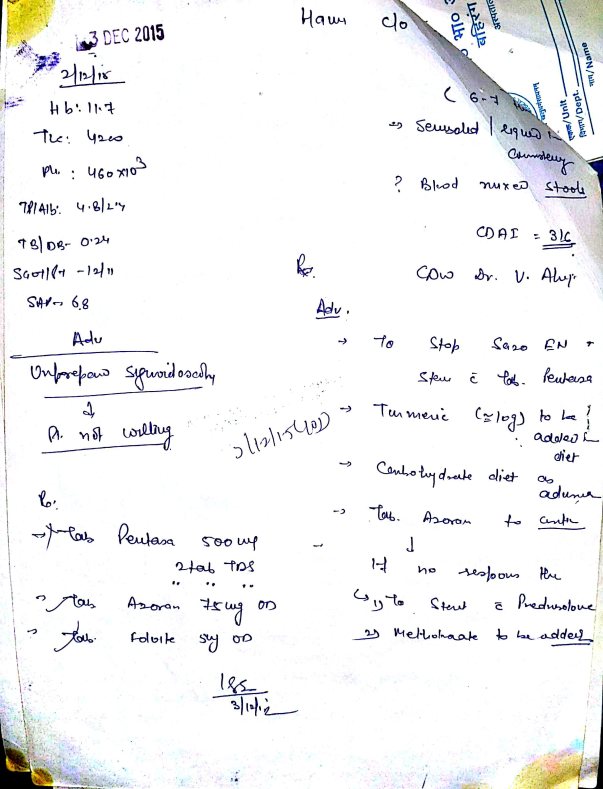 3 DEC 2015
2/12/15
Hb: 11.7
TLC: 4200
Plt. : 460 x10³
TP/Alb: 4.8/2.4
TB/DB- 0.24
SGOT/PT -12/11
SAP- 68
Adv
Unprepared sigmoidoscopy
↓
Pt. not willing
Rx.
→ Tab Pentasa 500 mg
2 tab TDS
" " "
Tab Azoran 75 mg OD
Tab. Folvite 5mg OD
3/12/15
c/o
( 6-7
Semisolid / liquid in
Consistency
? Blood mixed stools
CDAI = 316
Rx.
CDW Dr. V. Ahuja
Adv.
→ To Stop Sazo EN +
Start c̄ Tab. Pentasa
→ Turmeric (≈10g) to be
added in
diet
→ Carbohydrate diet as
→ Tab. Azoran to contn
↓
If no response then
1) To Start c̄ Prednisolone
2) Methotrexate to be added
Name
Unit
Dept.